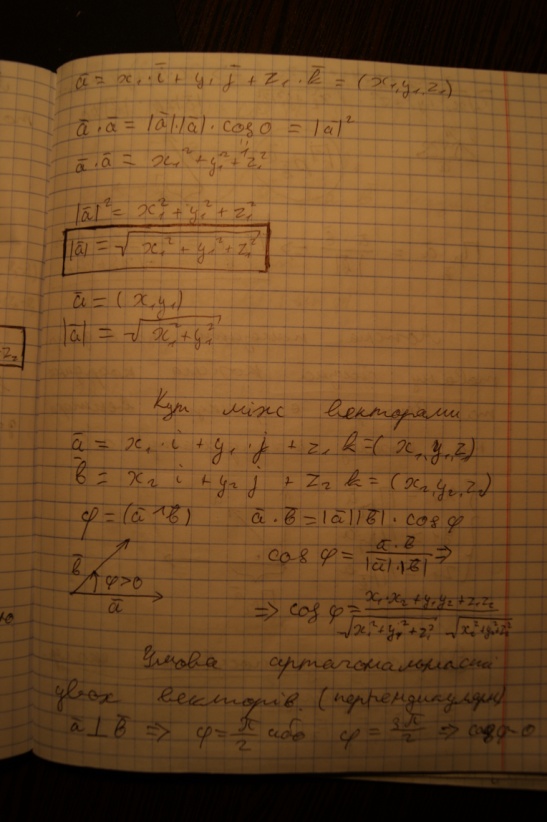 ā = x₁·ī + y₁ j̄ + z₁·k̄ = (x₁,y₁,z₁)
ā·ā = |ā|·|ā|·cos0 = |ā|²
1
ā·ā = x₁² + y₁² + z₁²
|ā|² = x₁² + y₁² + z₁²
|ā| = √(x₁² + y₁² + z₁²)
ā = (x₁y₁)
|ā| = √(x₁² + y₁²)
Кут між векторами
ā = x₁·i + y₁·j + z₁ k = (x₁,y₁,z₁)
b̄ = x₂ i + y₂ j + z₂ k = (x₂,y₂,z₂)
φ = (ā^b̄) ā·b̄ = |ā||b̄|·cosφ
cosφ = ā·b̄ / |ā|·|b̄| ⇒
b̄ φ>0
ā
⇒ cosφ = x₁·x₂ + y₁y₂ + z₁z₂ / √(x₁² + y₁² + z₁²) √(x₂² + y₂² + z₂²)
Умова артагональності
двох векторів. (перпендикулярн)
ā⊥b̄ ⇒ φ = π/2 або φ = 3π/2 ⇒ cosφ=0